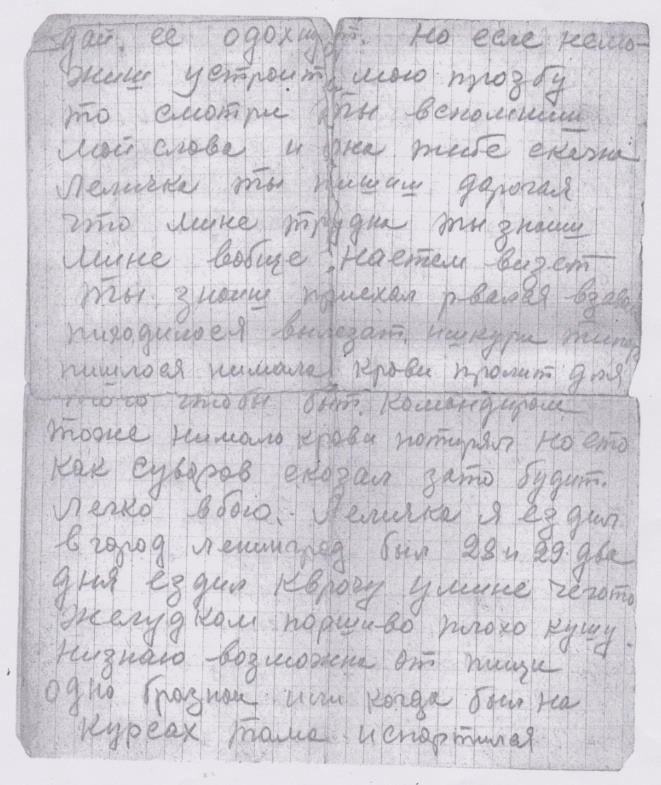 дай. ее одохнут. Но если немо-
жиш устроит мою прозбу
то смотри ты вспомниш
мои слова и она тибе скажа
Леличка ты пишиш дарогая
что мине трудна ты знаиш
мине вобще настем визет
ты знаиш приехал рвалая взавод
приходилося вылезат. ишкури типер
пишлося нимала крови пролит для
того чтобы быт. командиром
тоже нимало крови потирял но ето
как Суваров сказал зато будит.
легко вбою. Леличка я ездил
в город Ленинград был 28 и 29 два
дня ездил кврачу умине чегото
жегудком поршиво плохо кушу.
низнаю возможна от пищи
одно бразнои или когда был на
курсах тама испортился